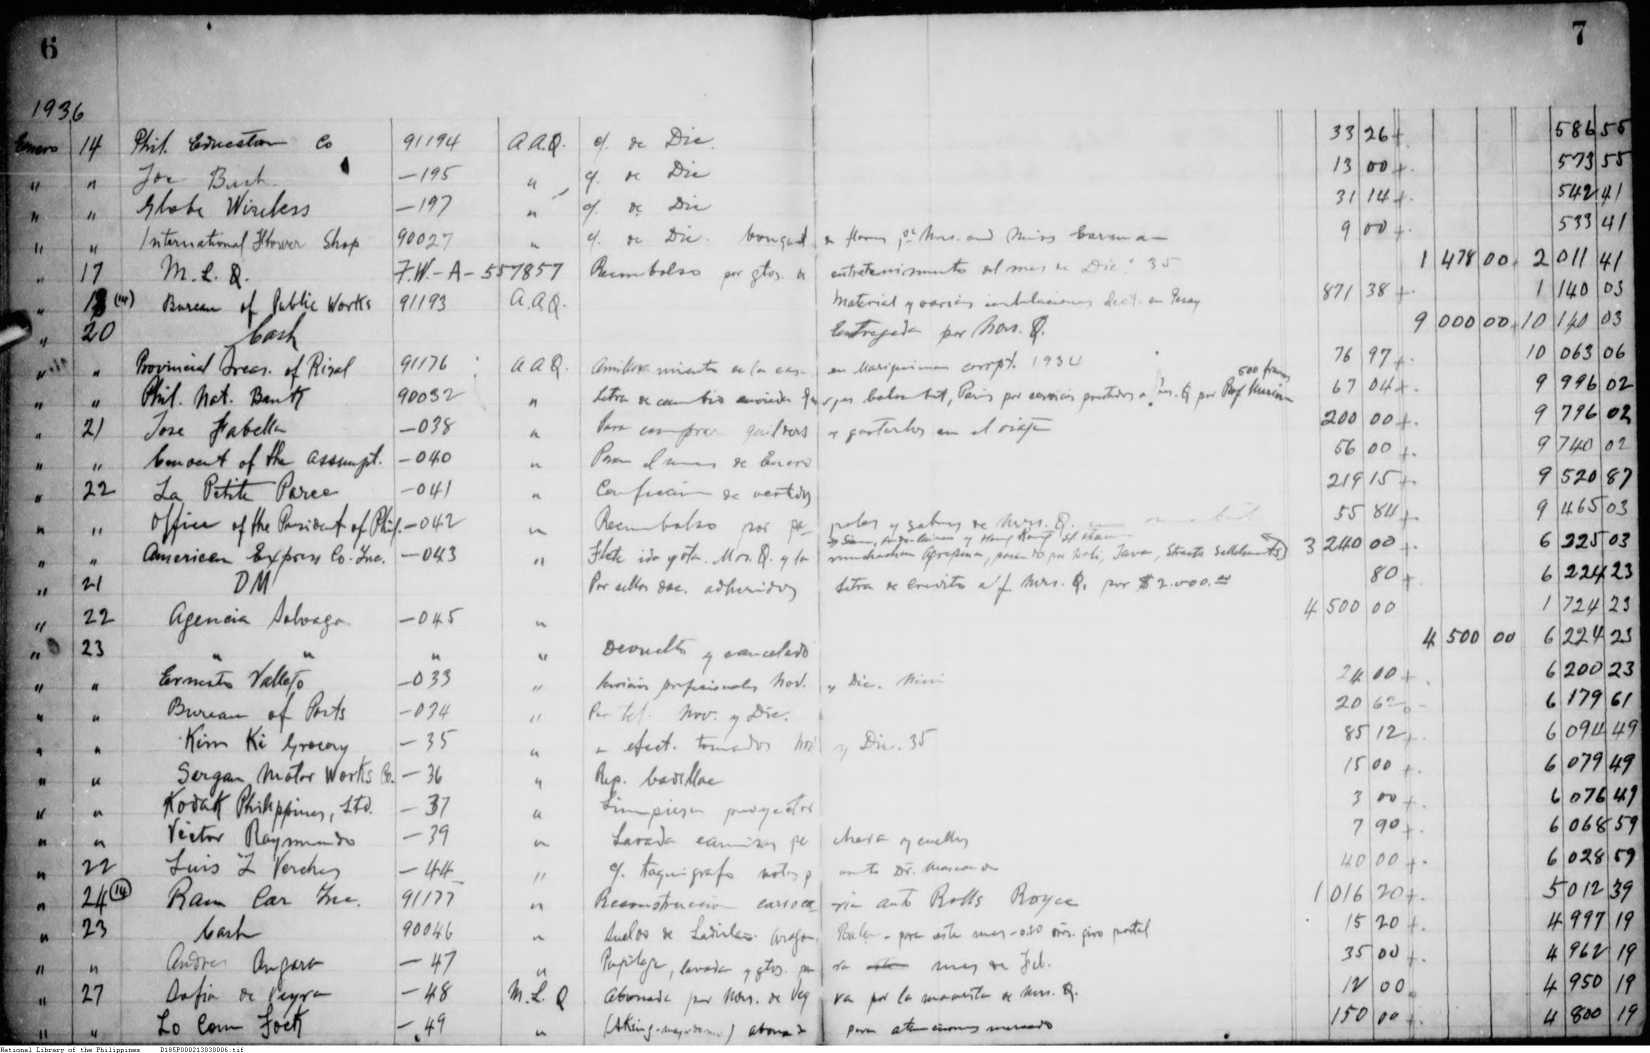 6 7
1936
Enero 14 Phil. Education Co 91194 A.A.Q. c/. de Dic. 33 26 + 586 55
" " Joe Bush — 195 " c/. de Dic 13 00 + 573 55
" " Globe Wireless — 197 " c/. de Dic 31 14 + 542 41
" " International Flower Shop 90027 " c/. de Dic. bouquet de flores Mrs. and Miss 9 00 + 533 41
" 17 M. L. Q. F.W.-A-557857 Reembolso por gtos. de entretenimiento del mes de Dic. 35 1 478 00 + 2 011 41
" 18 (14) Bureau of Public Works 91193 A.A.Q. Material y varias instalaciones en Pasay 871 38 + 1 140 03
" 20 Cash Entregada por Mrs. Q. 9 000 00 + 10 140 03
" " Provincial Treas. of Rizal 91176 A A Q. Amillaramiento de la casa en Mariquina corrpt. 1934 76 97 + 10 063 06
500 francs
" " Phil. Nat. Bank 90032 " Letra de cambio Paris por servicios prestados a Mrs. Q por Prof 67 04 + 9 996 02
" 21 Jose Fabella — 038 " Para comprar guilders y gastarlos en el viaje 200 00 + 9 796 02
" " Convent of the Assumpt. — 040 " Para el mes de Enero 56 00 + 9 740 02
" 22 La Petite Paree — 041 " Confeccion de vestidos 219 15 + 9 520 87
" " Office of the President of Phil. — 042 " Reembolso por de Mrs. Q. 55 84 + 9 465 03
" " American Express Co. Inc. — 043 " Flete ida y vta. Mrs. Q. y la muchacha Agripina, para Bali, Java, Straits Settlements 3 240 00 + 6 225 03
" 21 DM Por sellos doc. adheridos letra de credito a/f Mrs. Q. por $2.000.00 80 + 6 224 23
" 22 Agencia Salvago — 045 " 4 500 00 1 724 23
" 23 " " " " Devuelto y cancelado 4 500 00 6 224 23
" " Ernesto Vallejo — 033 " Servicios profesionales Nov. y Dic. Nini 24 00 + 6 200 23
" " Bureau of Posts — 034 " Por tel. Nov. y Dic. 20 62 6 179 61
" " Kim Ki Grocery — 35 " " efect. tomados Nov y Dic. 35 85 12 + 6 094 49
" " Sergan Motor Works Co. — 36 " Rep. Cadillac 15 00 + 6 079 49
" " Kodak Philippines, Ltd. — 37 " Limpieza proyector 3 00 + 6 076 49
" " Victor Raymundo — 39 " Lavada camisas y cuellos 7 90 + 6 068 59
" 22 Luis Z Verches — 44 " c/. taquigrafo notas 40 00 + 6 028 59
" 24 (14) Ram Car Inc. 91177 " Reconstruccion carroceria auto Rolls Royce 1 016 20 + 5 012 39
" 23 Cash 90046 " Sueldo de Ladislao para este mes giro postal 15 20 + 4 997 19
" " Andres Angara — 47 " Pupilaje, lavada y gtos. para mes de Feb. 35 00 + 4 962 19
" 27 Sofia de Veyra — 48 M. L. Q Abonada por Mrs. de Veyra por la de Mrs. Q. 12 00 4 950 19
" " Lo Com Fock — 49 " (Aking-mayordomo) abona para atenciones mercado 150 00 + 4 800 19
National Library of the Philippines D185P000213030006.tif